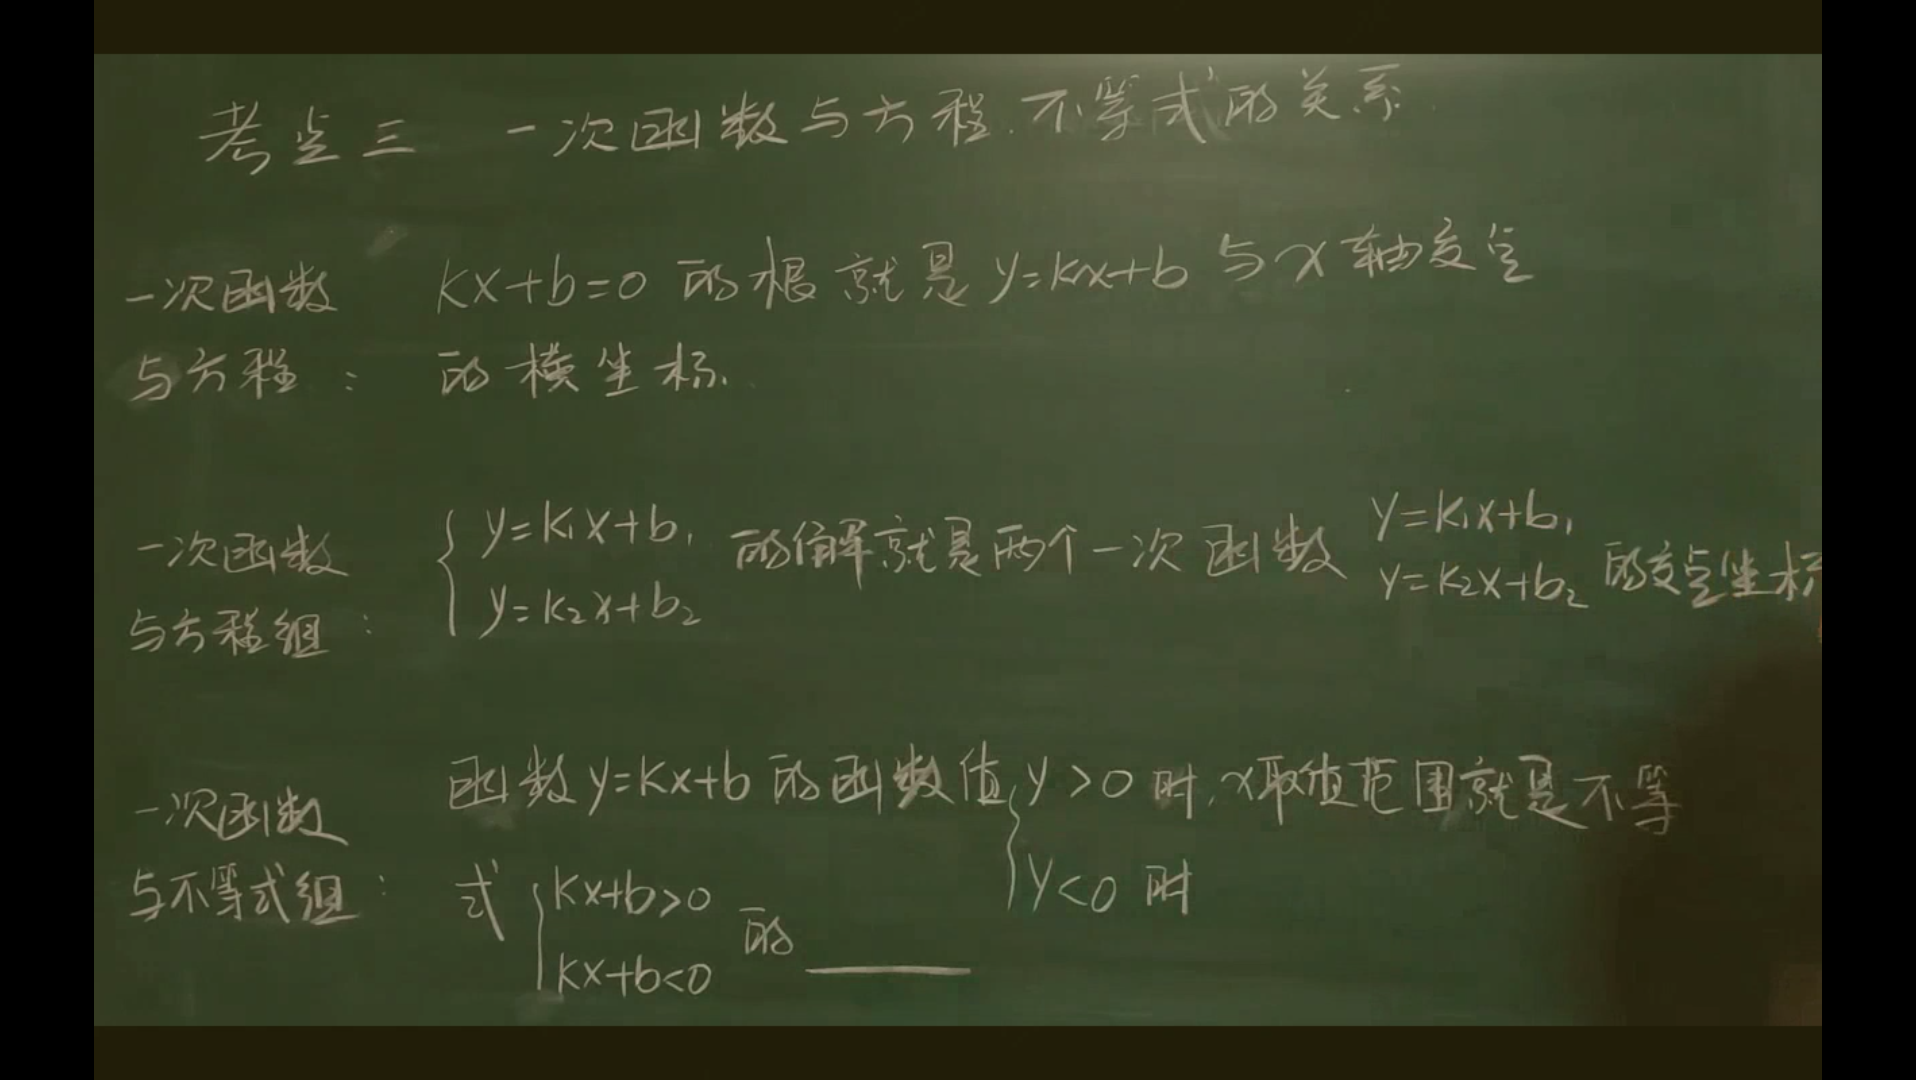 考点三 一次函数与方程.不等式的关系.
一次函数 kx+b=0 的根就是 y=kx+b 与 x 轴交点
与方程： 的横坐标.
一次函数 { y=k₁x+b₁ 的解就是两个一次函数 y=k₁x+b₁
与方程组： y=k₂x+b₂ y=k₂x+b₂ 的交点坐标
一次函数 函数 y=kx+b 的函数值 { y>0 时, x取值范围就是不等
y<0 时
与不等式组： 式 { kx+b>0 的 ____
kx+b<0